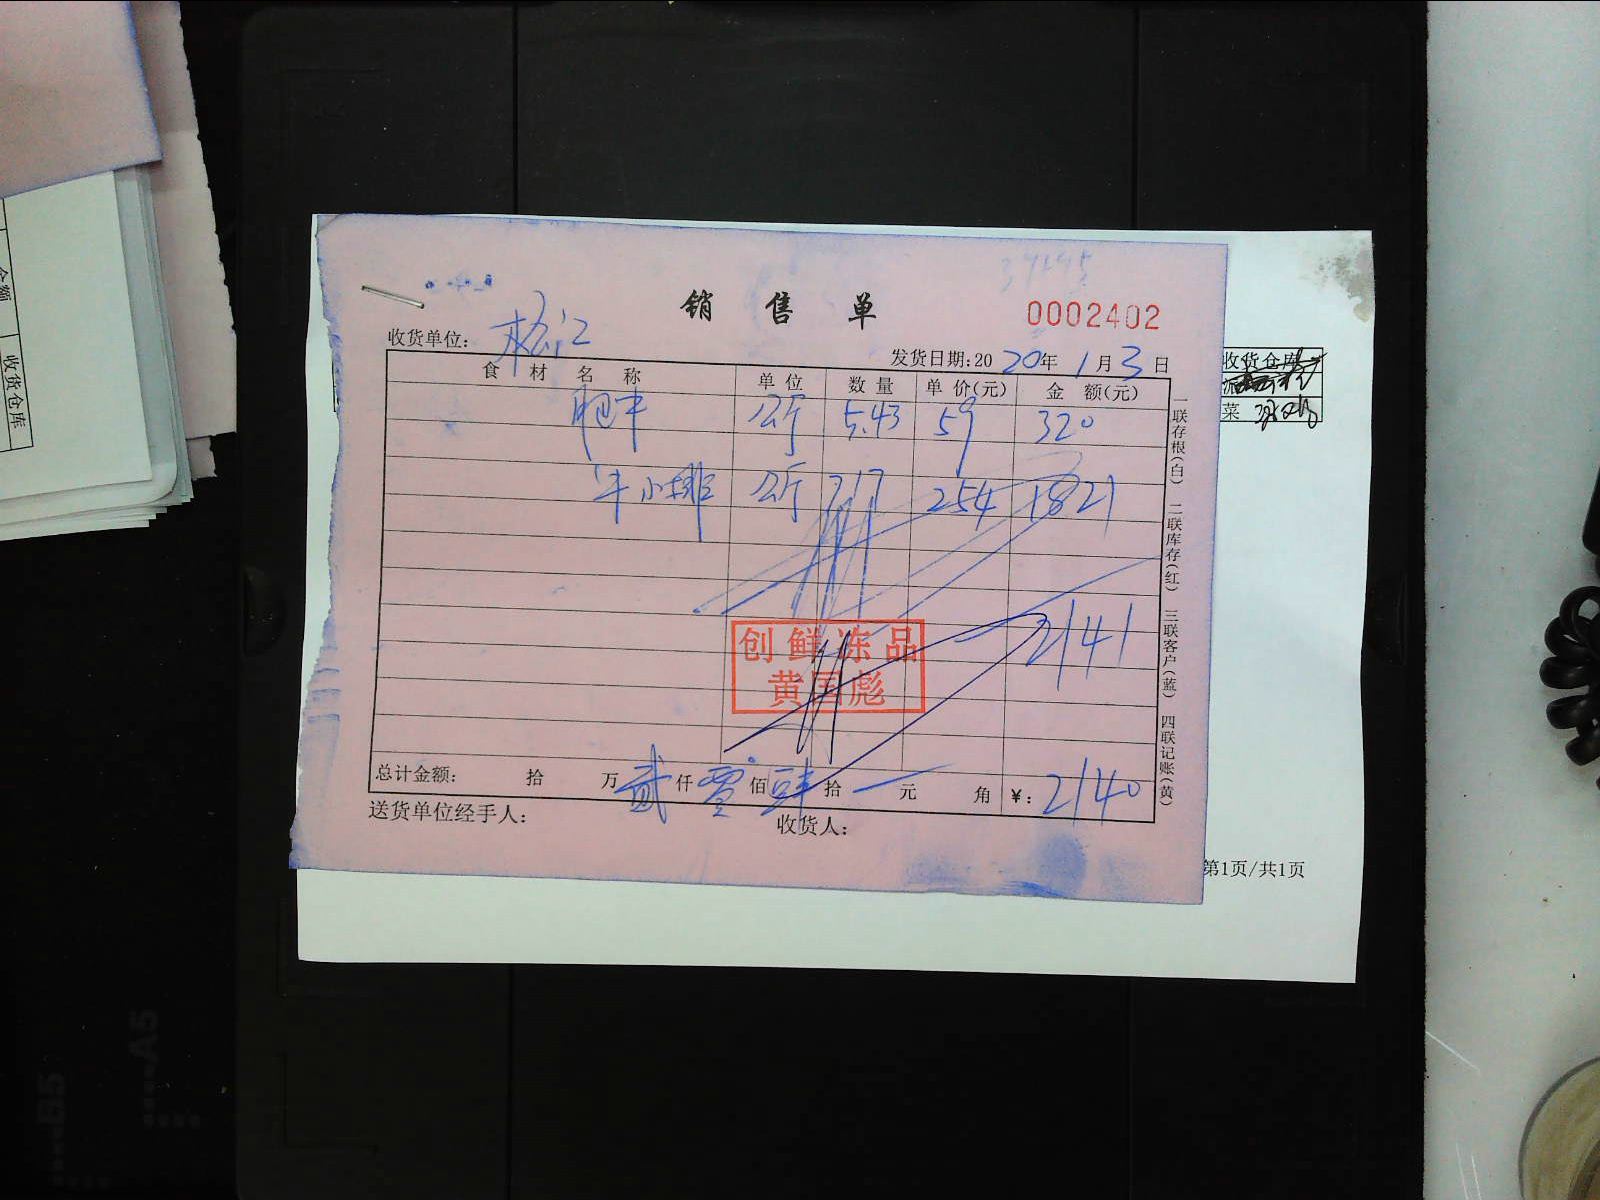 销 售 单
0002402
收货单位: 松江
发货日期:2020年1月3日
食 材 名 称 单位 数量 单价(元) 金 额(元)
肥牛 公斤 5.43 59 320
牛小排 公斤 7.17 254 1821
2141
创鲜冻品
黄国彪
总计金额: 拾 万 贰 仟 零 佰 肆 拾 一 元 角 ¥: 2140
送货单位经手人: 收货人:
一联存根(白) 二联库存(红) 三联客户(蓝) 四联记账(黄)
收货仓库
菜
第1页/共1页
收货仓库
金额
A5
B5